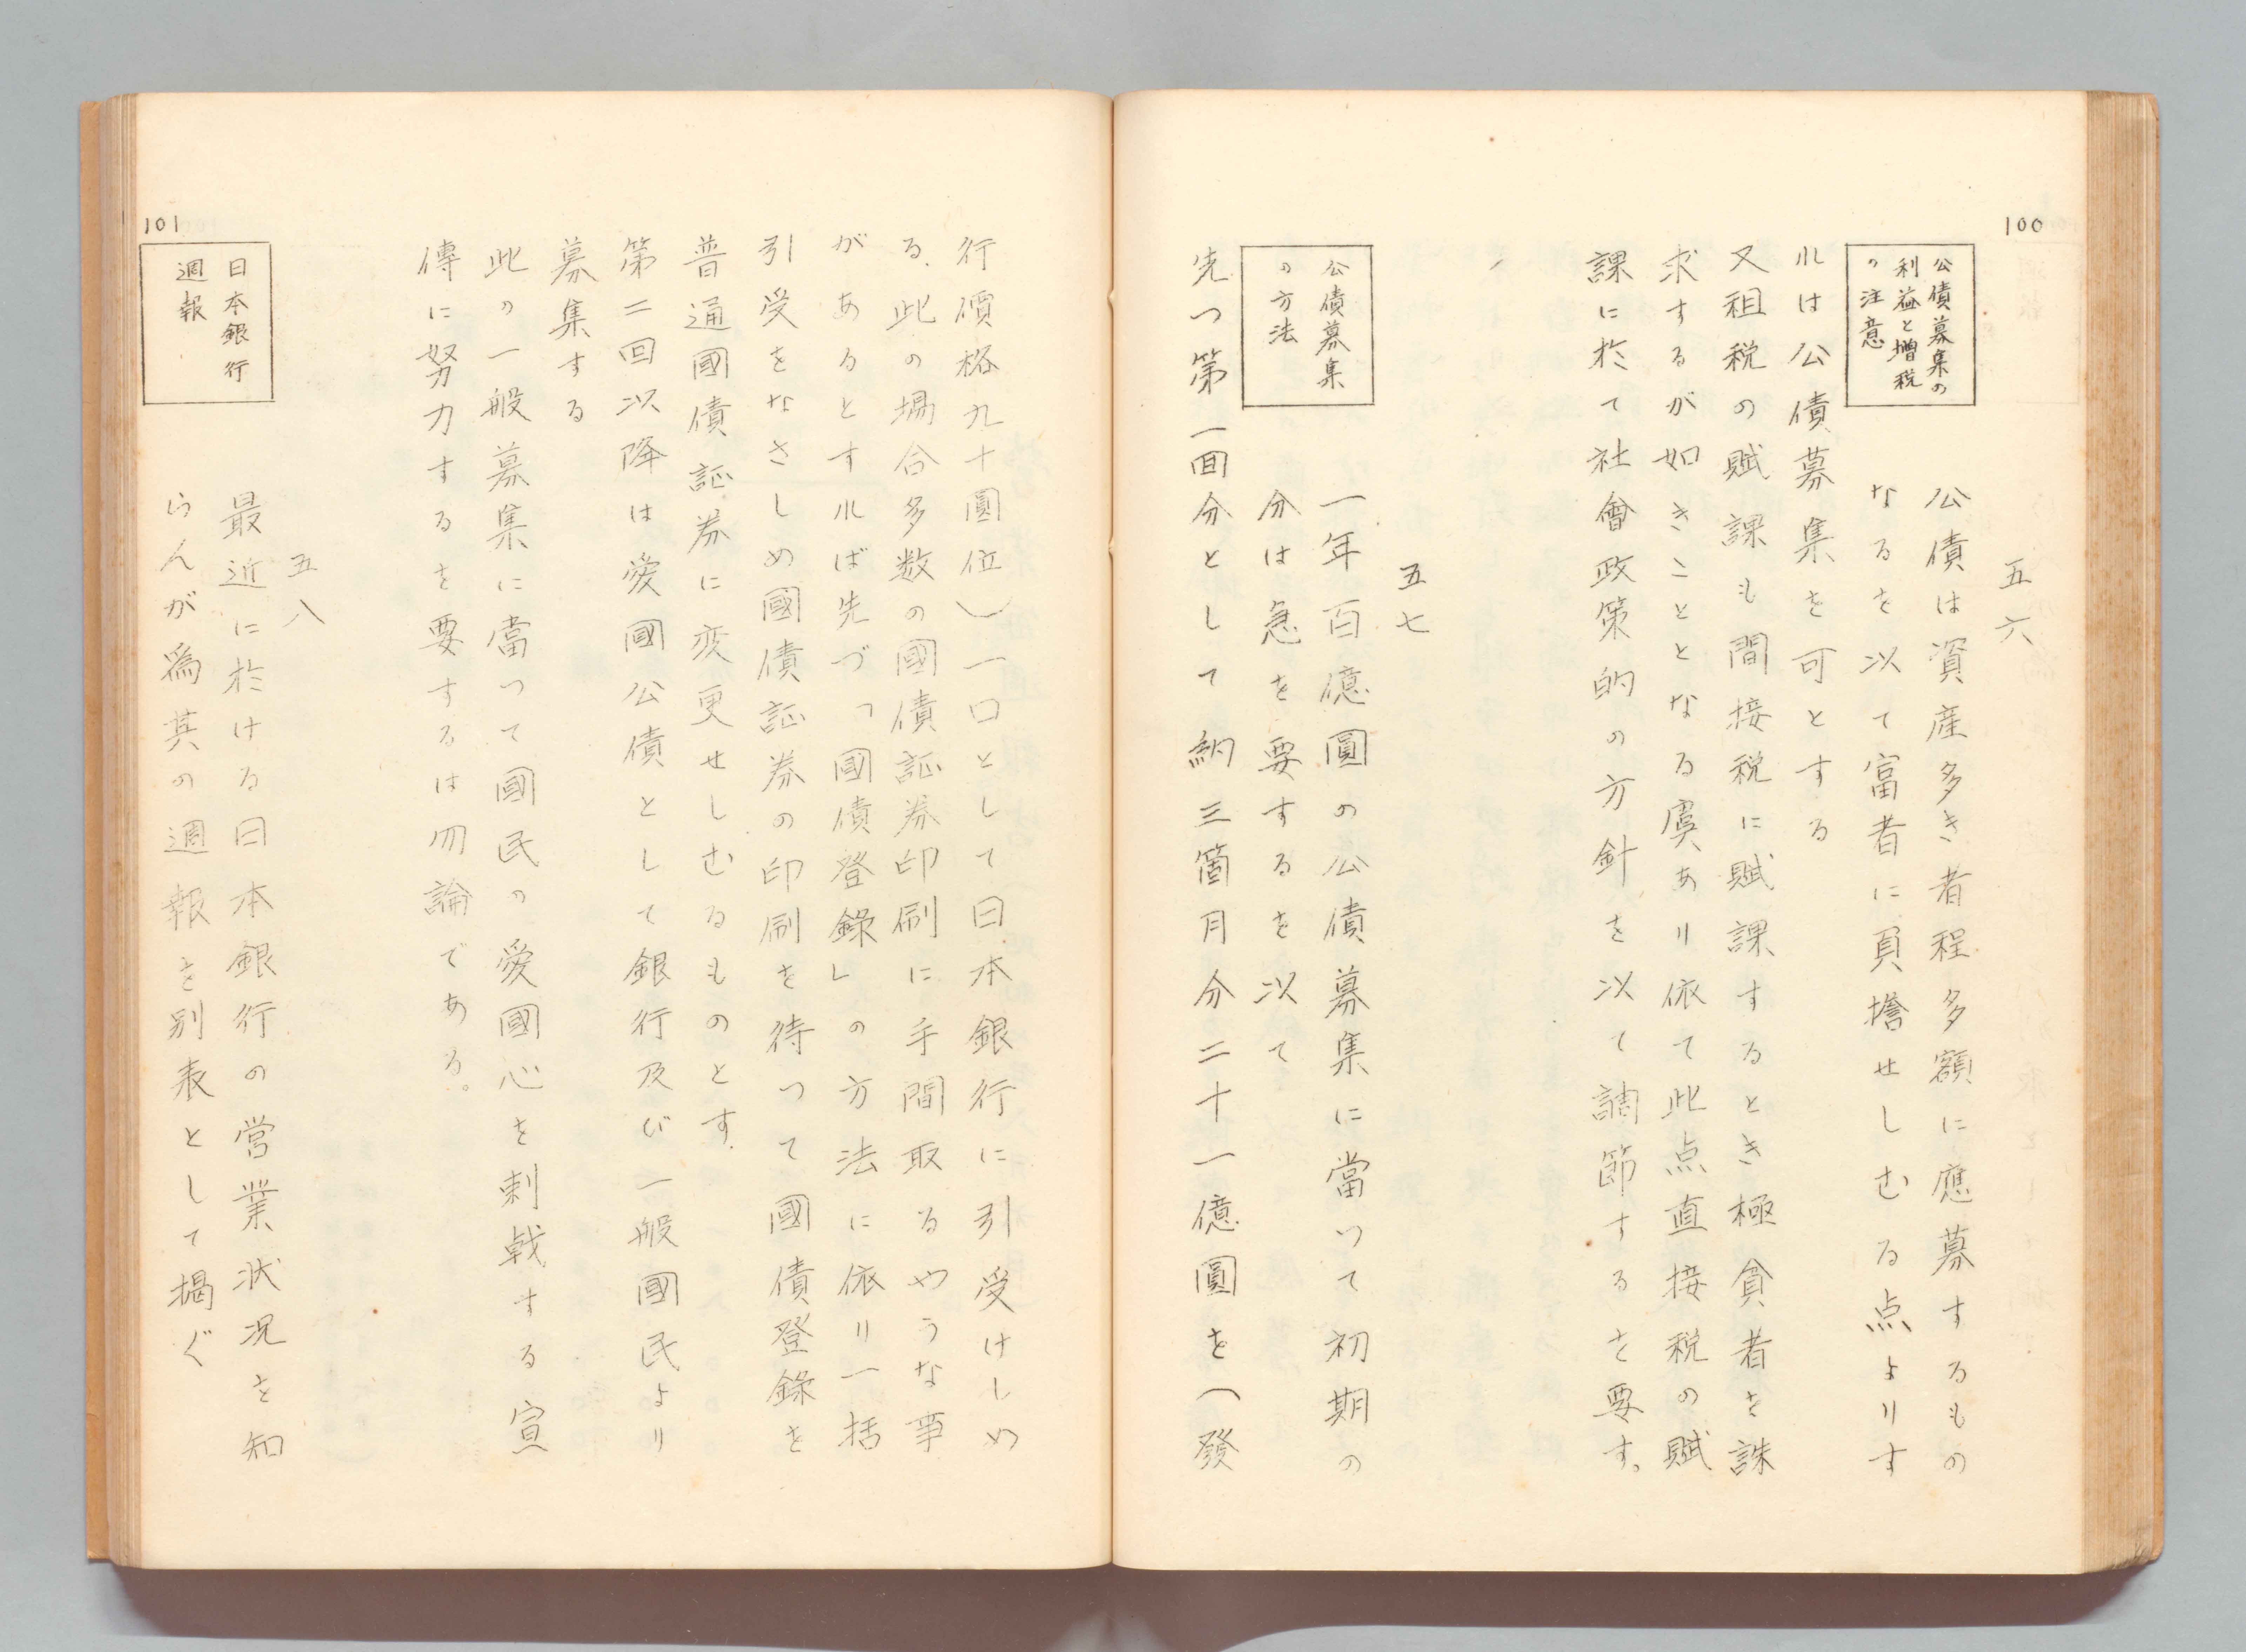 100
五六
公債募集の
利益と増税
の注意
公債は資産多き者程多額に應募するもの
なるを以て富者に負擔せしむる点よりす
れは公債募集を可とする
又租税の賦課も間接税に賦課するとき極貧者を誅
求するが如きこととなる虞あり依て此点直接税の賦
課に於て社會政策的の方針を以て調節するを要す。
五七
公債募集
の方法
一年百億圓の公債募集に當つて初期の
分は急を要するを以て
先つ第一回分として納三箇月分二十一億圓を(發
行價格九十圓位)一口として日本銀行に引受けしめ
る、此の場合多数の國債証券印刷に手間取るやうな事
があるとすれば先づ「國債登錄」の方法に依り一括
引受をなさしめ國債証券の印刷を待つて國債登錄を
普通國債証券に変更せしむるものとす.
第二回以降は愛國公債として銀行及び一般國民より
募集する
此の一般募集に當つて國民の愛國心を刺戟する宣
傳に努力するを要するは勿論である。
五八
101
日本銀行
週報
最近に於ける日本銀行の営業状况を知
らんが爲其の週報を別表として揭ぐ